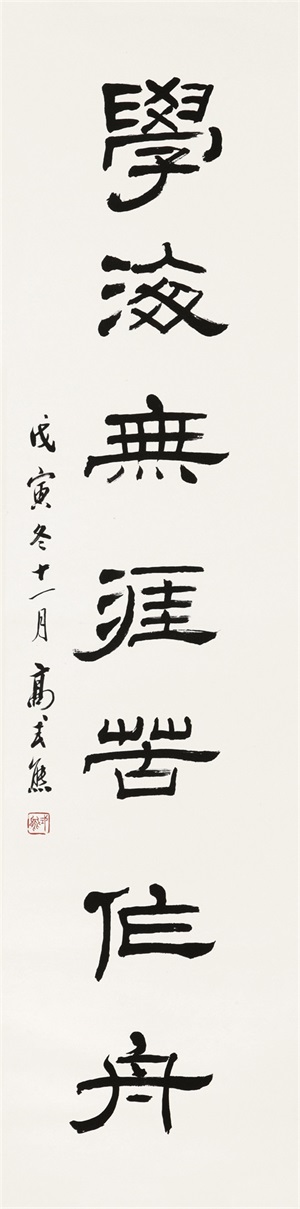 學海無涯苦作舟
戊寅冬十一月 高式熊